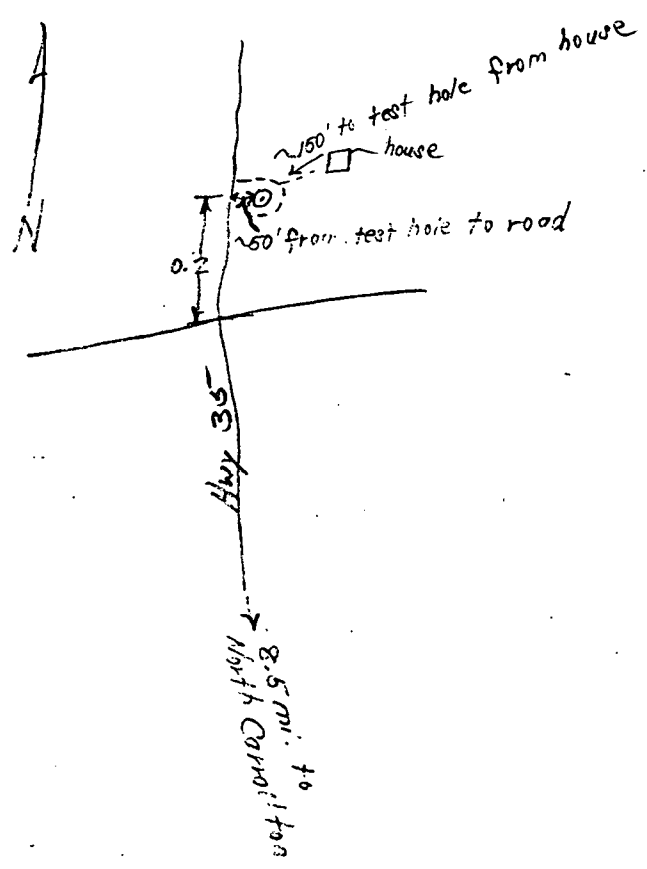 N
~150' to test hole from house
house
~50' from test hole to road
Hwy 35
8.5 mi. to
North Carrollton